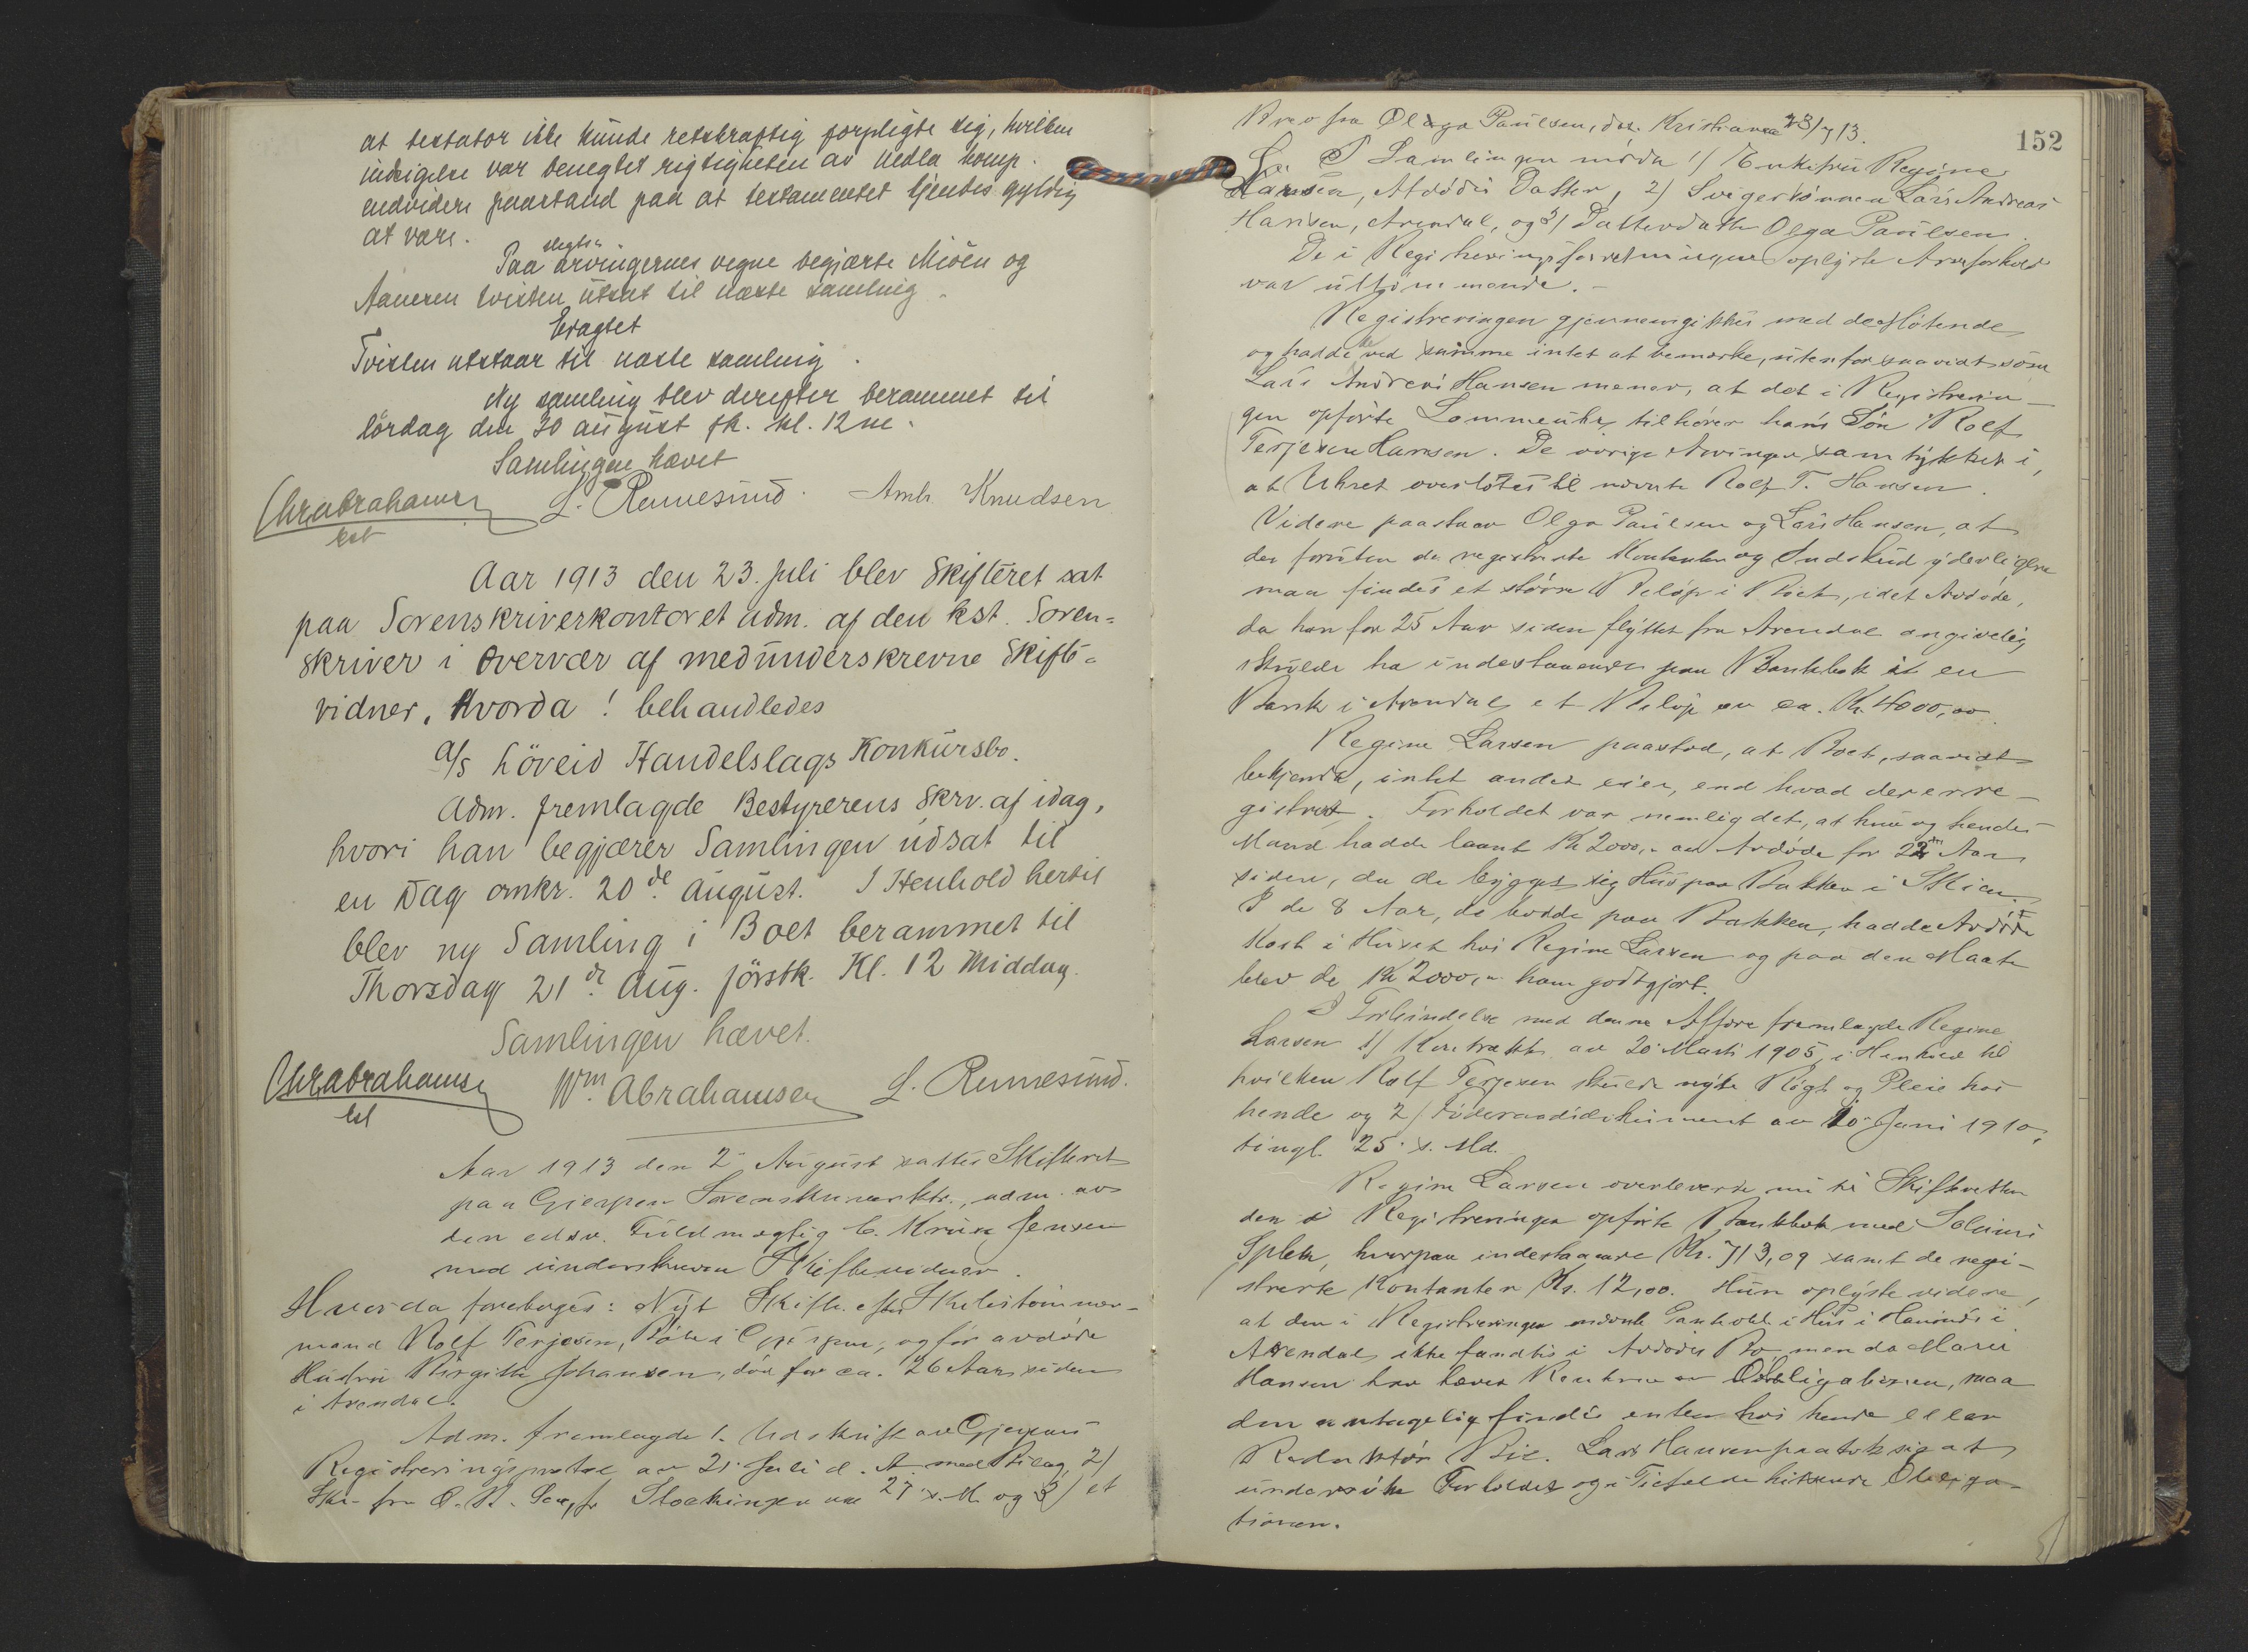 at testator ikke kunde retskraftig forpligte sig, hvilken
indsigelse var benegtet rigtigheten av nedla komp.
endvidere paastand paa at testamentet kjendes gyldig
at være.
slegts
Paa arvingernes vegne begjærte Miöen og
Aanesen tvisten utsat til næste samling.
Eragtet
Tvisten utstaar til næste samling.
Ny samling blev derefter berammet til
lördag den 30 august fk. kl. 12 m.
Samlingen hævet
Chrabrahamsen L. Rumesund. Amb. Knudsen
kst
Aar 1913 den 23. Juli blev Skifteret sat
paa Sorenskriverkontoret adm. af den kst. Soren=
skriver i Overvær af medunderskrevne Skifte=
vidner, Hvorda! behandledes
A/S Löveid Handelslags Konkursbo.
Adm. fremlagde Bestyrerens Skrv. af idag,
hvori han begjærer Samlingen udsat til
en Dag omkr. 20de August. I Henhold hertil
blev ny Samling i Boet berammet til
Thorsdag 21de Aug. förstk. Kl. 12 Middag.
Samlingen hævet.
Chrabrahamsen Wm Abrahamsen L. Rumesund.
kst
Aar 1913 den 2. August sattes Skifteret
paa Gjerpen Sorenskriverktr., adm. av
den edsv. Fuldmægtig C. Kruse Jensen
med underskrevne Skiftevidner.
Hvorda foretoges: Nyt Skifte efter Skibstömmer-
mand Rolf Terjesen, Böle i Gjerpen, og för avdöde
Hustru Birgitte Johansen, död for ca. 26 Aar siden
i Arendal.
Adm. fremlagde 1. Utskrift av Gjerpens
Registreringsprotocol av 21 Juli d. A. med Bilag, 2/
Skr. fra O. R. fr. Stockingen av 27 s. M. og 3/ et
152
Brev fra Olga Paulsen, dat. Kristiania 23/7 13.
I Samlingen mödte 1/ Enkefru Regine
Larsen, Avdödes Datter, 2/ Svigersönnen Lars Andreas
Hansen, Arendal, og 3/ Datterdatter Olga Paulsen.
De i Registreringsforretningen oplyste Arveforhold
var utkömmende.-
Registreringen gjennemgikkes med de Mötende
og hadde de ved samme intet at bemærke, utenfor saavidt som
Lars Andreas Hansen mener, at det i Registrerin-
gen opförte Lommeuhr tilhörer hans Sön Rolf
Terjesen Hansen. De övrige Arvinger samtykket i,
at Uhret overlötes til nævnte Rolf T. Hansen.
Videre paastaar Olga Paulsen og Lars Hansen, at
der foruten de registrerte Kontanter og Indskud yderligere
maa findes et större Belöp i Boet, idet Avdöde,
da han for 25 Aar siden flyttet fra Arendal angivelig
skulde ha indestaaende paa Bankbok i en
Bank i Arendal et Belöp av ca. Kr. 4000,00.
Regine Larsen paastod, at Boet, saavidt
bekjendt, intet andet eier, end hvad der er re-
gistrert. Forholdet var nemlig det, at hun og hendes
Mand hadde laant Kr 2000,- av Avdöde for 22 Aar
siden, da de bygget sig Hus paa Bakken i Skien.
I de 8 Aar, de bodde paa Bakken, hadde Avdöde
Kost i Huset hos Regine Larsen og paa den Maate
blev de Kr 2000,- ham godtgjort.
I Forbindelse med denne Affære fremlagde Regine
Larsen 1/ Kontrakt av 20 Marts 1905, i Henhold til
hvilken Rolf Terjesen skulde nyte Rögt og Pleie hos
hende og 2/ Föderaadsdokument av 10 Juni 1910,
tingl. 25. s. Md.
Regine Larsen overleverte nu til Skifteretten
den i Registreringen opförte Bankbok med Solum
Spbk, hvorpaa indestaaende Kr. 713,09 samt de regi-
strerte Kontanter Kr. 12,00. Hun oplyste videre,
at den i Registreringen nævnte Panteobl. i Hus i
Arendal ikke fandtes i Avdödes Bo, men da Marie
Hansen har hævet Renterne av Obligationen, maa
den antagelig findes enten hos hende eller
Redaktör Bie. Lars Hansen paatok sig at
undersöke Forholdet og i Tilfælde hitsende Obliga-
tionen.